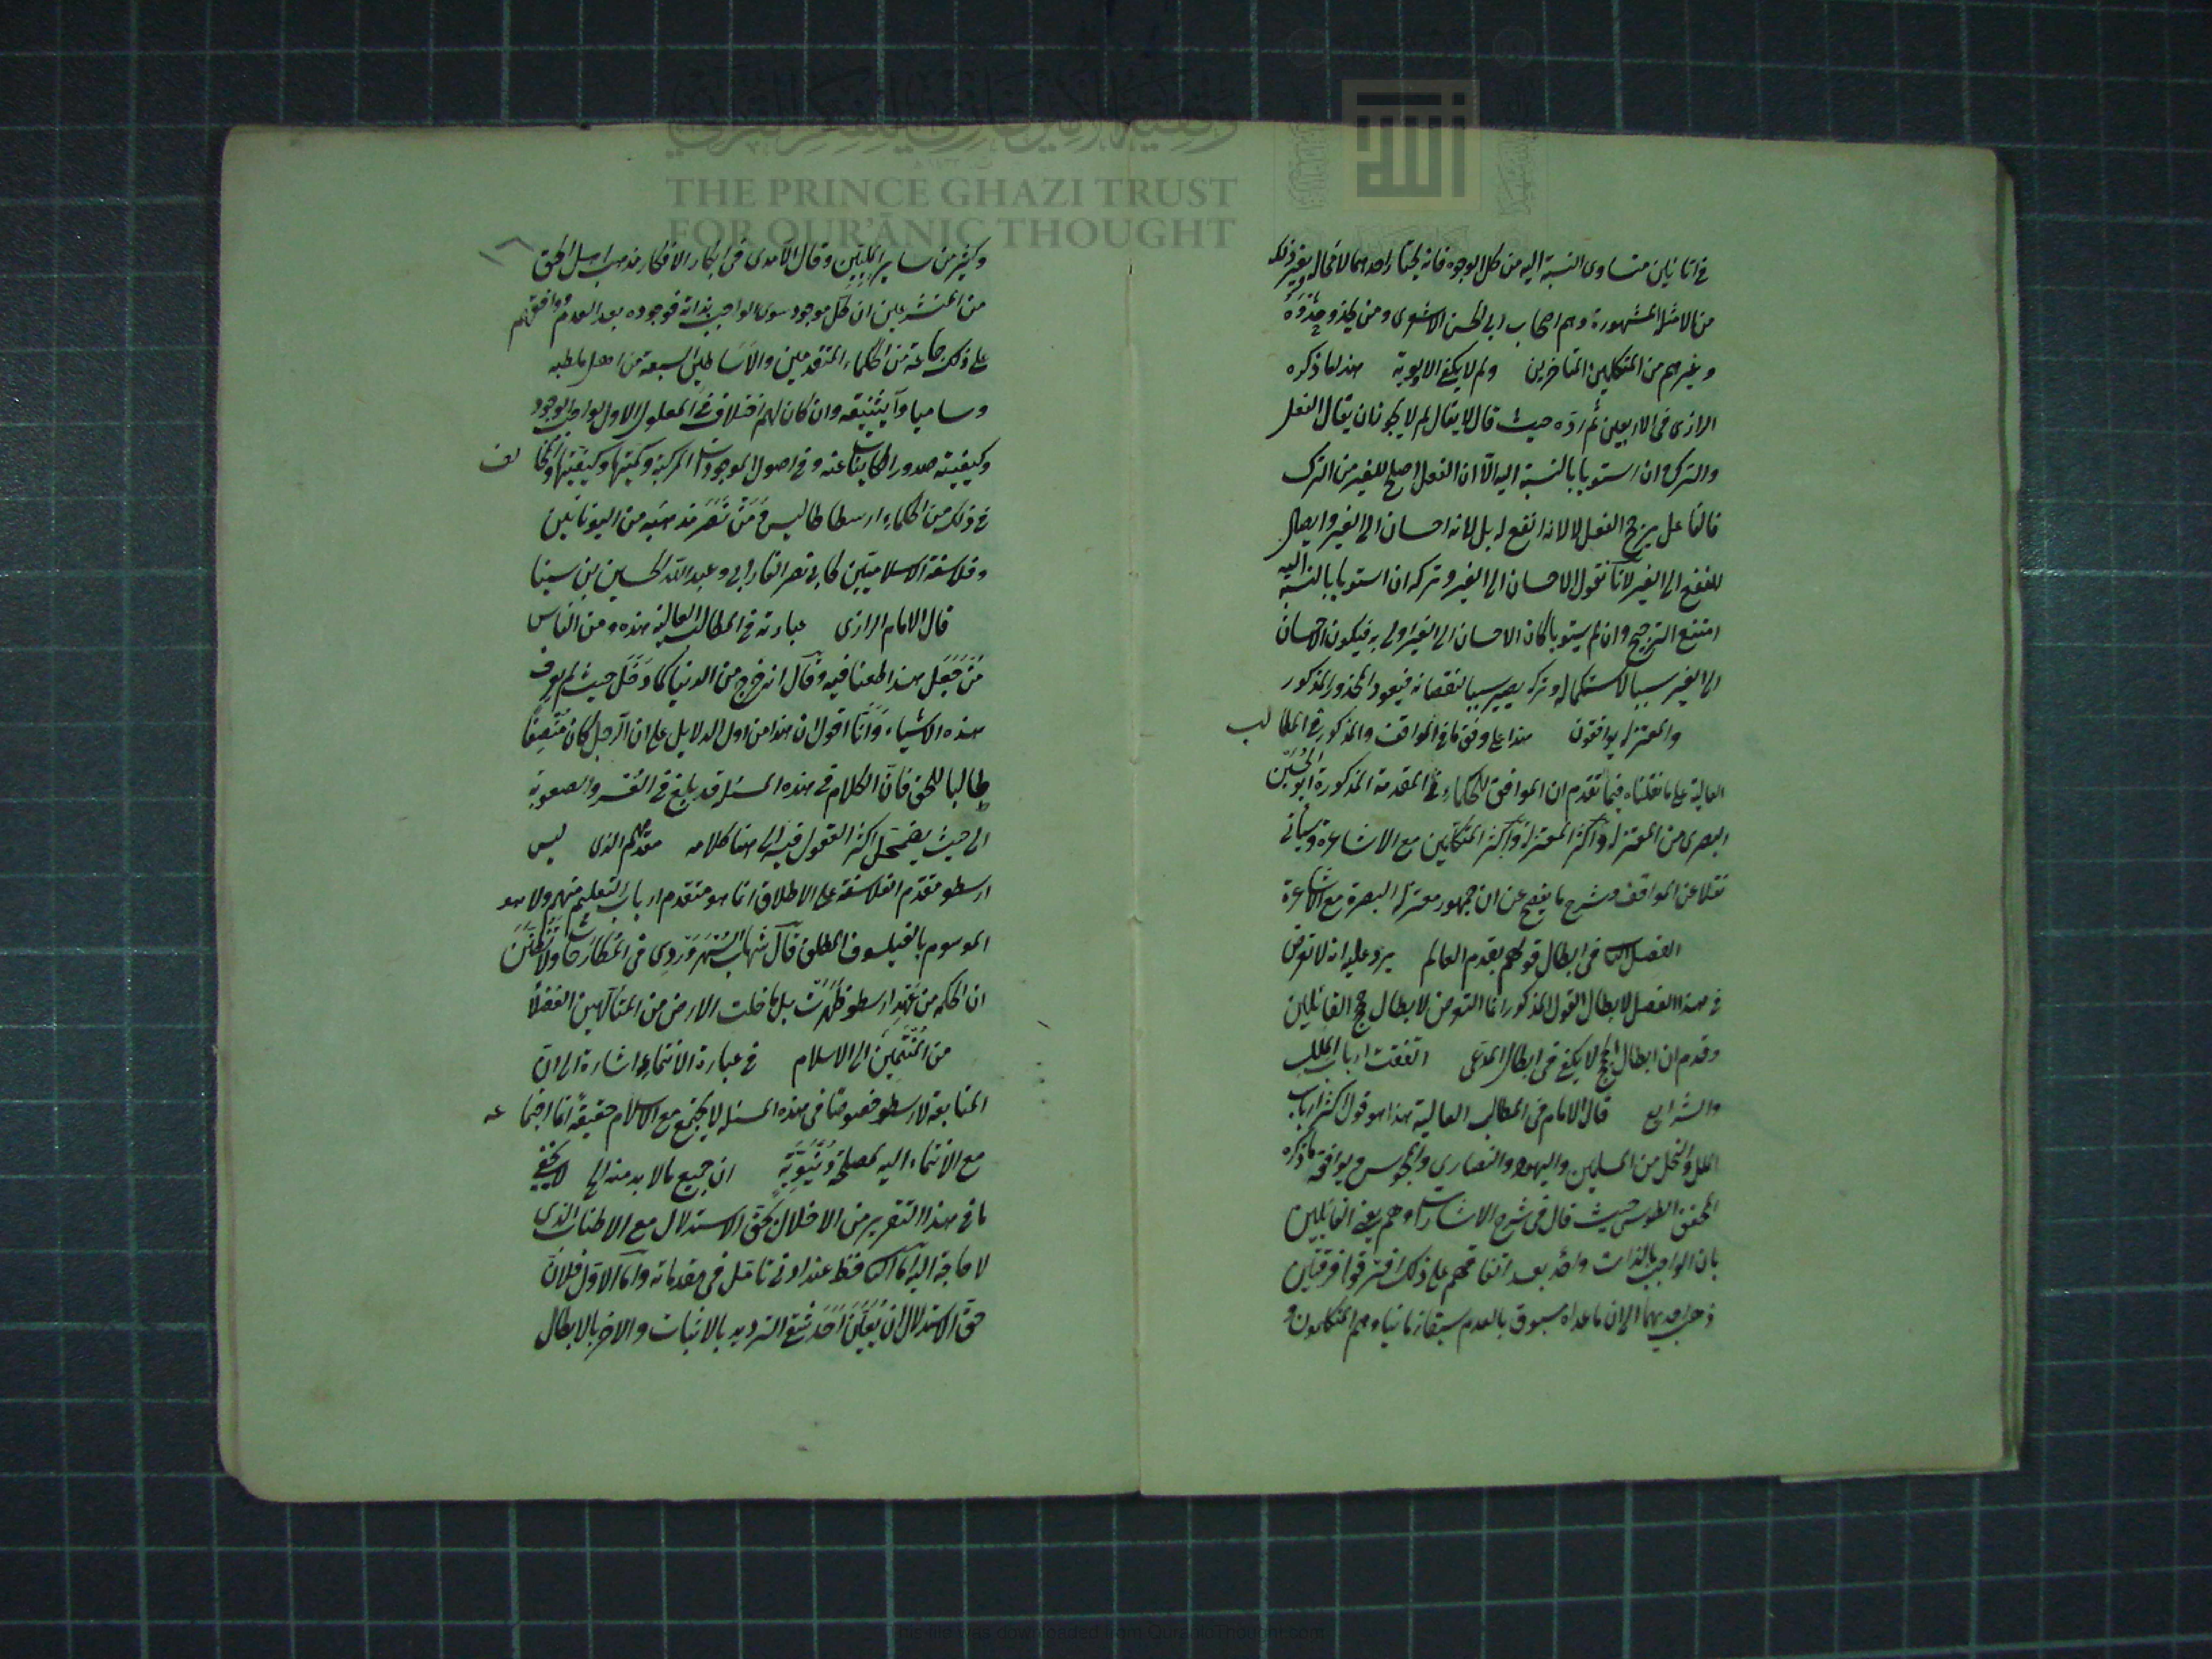 في اناءين متساوى النسبة اليه من كل الوجوه فانه يختار احدهما لا محال وغير ذلك
من الامثلة المشهورة وهم اصحاب ابى الحسن الاشعرى ومن يحذو حذوه
وغيرهم من المتكلمين المتاخرين ولم لا يكفى الاولوية هذا ما ذكره
الرازى فى الاربعين ثم رده حيث قال لا يقال لم لا يجوز ان يقال الفعل
والترك وان استويا بالنسبة اليه الا ان الفعل اصلح للغير من الترك
فالفاعل يرجح الفعل لا لانه انفع له بل لانه احسان الى الغير وايصال
للنفع الى الغير لانا نقول الاحسان الى الغير وتركه ان استويا بالنسبة اليه
امتنع الترجيح وان لم يستويا كان الاحسان الى الغير اولى به فيكون الاحسان
الى الغير سببا لاستكماله وتركه يصير سببا لنقصانه فيعود المحذور المذكور
والمعتزلة يوافقون هذا على وفق ما فى المواقف والمذكور فى المطالب
العالية على ما نقلناه فيما تقدم ان الموافق للحكماء فى المقدمة المذكورة ابو الحسين
البصرى من المعتزلة واكثر المعتزلة واكثر المتكلمين مع الاشاعرة وسياتى
نقلا عن المواقف وشرحه ما يفصح عن ان جمهور معتزلة البصرة مع الاشاعرة
الفصل الثانى فى ابطال قولهم بقدم العالم يرد عليه انه لا تعرض
فى هذا الفصل لابطال القول المذكور انما التعرض لابطال حجج القائلين
وقدم ان ابطال الحجج لا يكفى فى ابطال المدعى اتفقت ارباب الملل
والشرايع قال الامام فى المطالب العالية هذا هو قول اكثر ارباب
الملل والنحل من المسلمين واليهود والنصارى والمجوس ويوافقه ما ذكره
المحقق الطوسى حيث قال فى شرح الاشارات وهم يعنى القائلين
بان الواجب بالذات واحد بعد اتفاقهم على ذلك افترقوا فرقتين
ذهب احديهما الى ان ما عداه مسبوق بالعدم سبقا زمانيا وهم المتكلمون و
وكثير من ساير المليين وقال الآمدى فى ابكار الافكار مذهب اهل الحق
من المتشرعين ان كل موجود سوى الواجب بذاته فوجوده بعد العدم ووافقهم
على ذلك جماعة من الحكماء المتقدمين والاساطين السبعة من اهل ملطيه
وساميا وآيثنيه وان كان لهم اختلاف فى المعلول الاول لواجب الوجود
وكيفية صدور الكاينات عنه وفى اصول الموجودات المركبة وكميتها وكيفيتها والمخالف
فى ذلك من الحكماء ارسطاطاليس ومن نصر مذهبه من اليونانيين
وفلاسفة الاسلاميين كابى نصر الفارابى وعبد الله الحسين بن سينا
قال الامام الرازى عبارته فى المطالب العالية هذه ومن الناس
من جعل هذا طعنا فيه وقال انه خرج من الدنيا كما دخل حيث لم يعرف
هذه الاشياء وانا اقول ان هذا من اول الدلايل على ان الرجل كان منصفا
طالبا للحق فان الكلام فى هذه المسئلة قد بلغ فى العسر والصعوبة
الى حيث يضمحل اكثر العقول فيه الى هنا كلامه مقدمهم الذى ليس
ارسطو مقدم الفلاسفة على الاطلاق انما هو متقدم ارباب التعليم منهم ولا هو
الموسوم بالفيلسوف المطلق قال شهاب السهروردى فى المطارحات ولا تظنن
ان الحكمة من عهد ارسطو ظهرت بل ما خلت الارض من المتألهين الفضلا
من المنتمين الى الاسلام فى عبارة الانتماء اشارة الى ان
المتابعة لارسطو خصوصا فى هذه المسئلة لا يجتمع مع الاسلام حقيقة انما اجتماعه
مع الانتماء اليه لمصلحة دنيوية ان جميع ما لا بد منه الخ لا يخفى
ما فى هذا التقرير من الاخلال بحق الاستدلال مع الاطناب الذى
لا حاجة اليه اما الثانى فظ عند ادنى تامل فى مقدماته واما الاول فلان
حق الاستدلال ان يعين احد شقى الترديد بالاثبات والاخر بالابطال